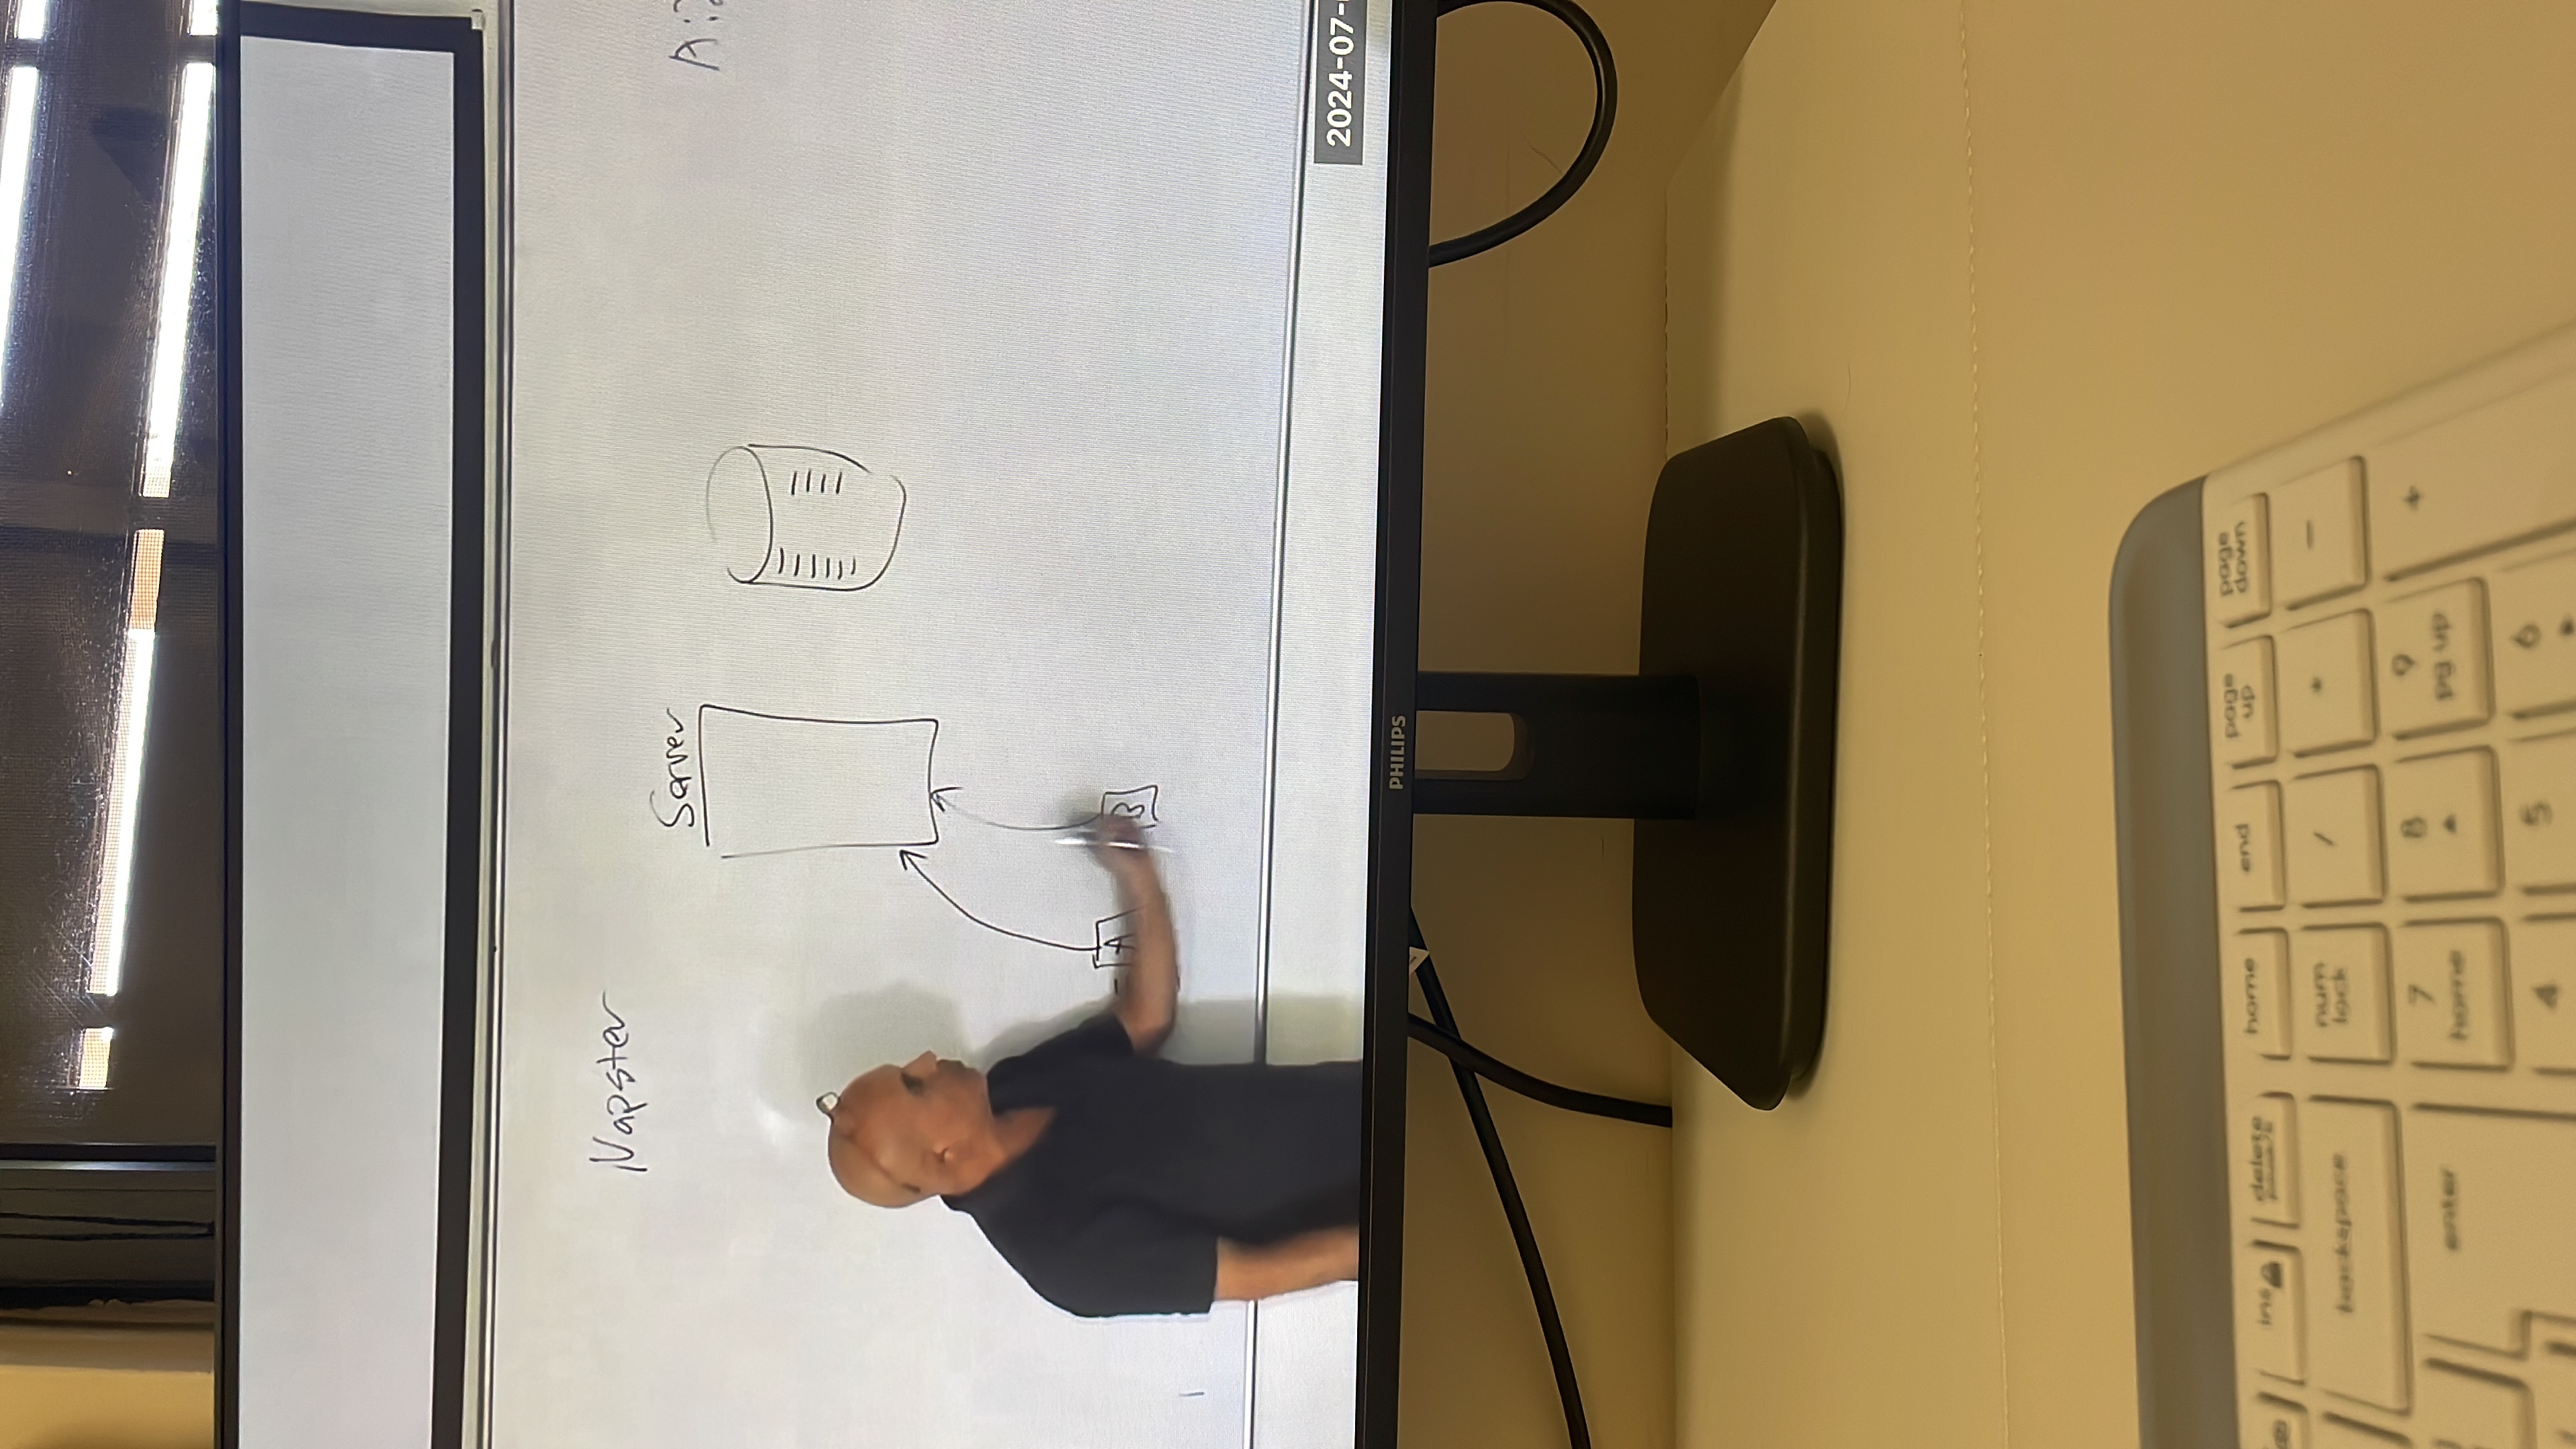 Napster
Server
A
B
2024-07-
PHILIPS
ins
delete
home
end
page
up
page
down
backspace
num
lock
/
*
-
enter
7
home
8
9
pg up
+
4
5
6